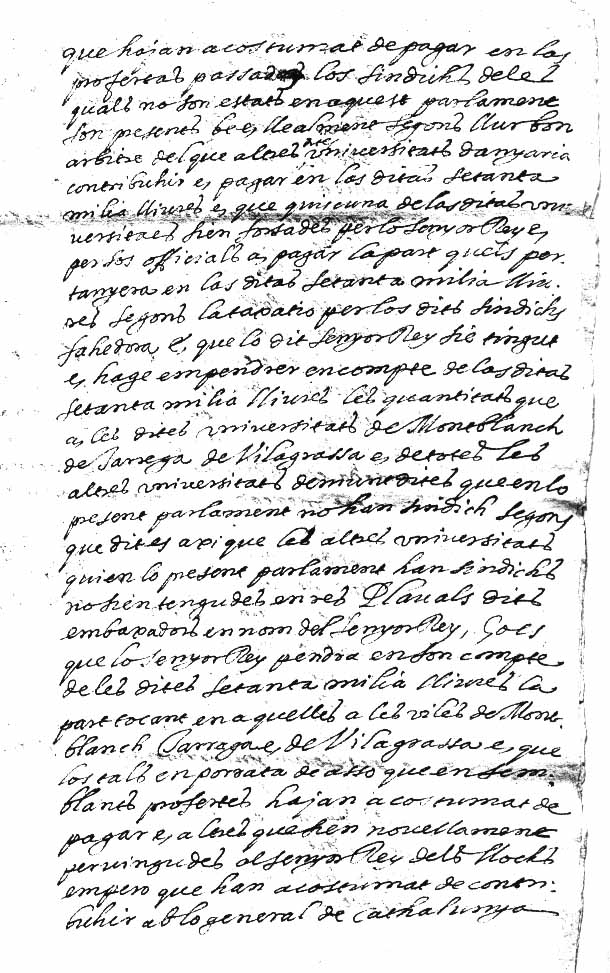 que hajan acostumat de pagar en las
profertas passades los sindichs deles
quals no son estats en aquest parlament
son presents be e llealment segons llur bon
arbitre del que altres universitats danyaria
contribuhir e pagar en las ditas setanta
milia lliures e que quiscuna de las ditas uni-
versitats sien forsades per lo senyor Rey e
per sos officials a pagar la part quels per-
tanyera en las ditas setanta milia lliu-
res segons la taxatio per los dits sindichs
fahedora E que lo dit senyor Rey sie tingut
e hage empendrer en compte de las ditas
setanta milia lliures les quantitats que
a les dites universitats de Montblanch
de Tarrega de Vilagrassa e de totes les
altres universitats demunt dites que en lo
present parlament no han sindich segons
que dit es axi que les altres universitats
qui en lo present parlament han sindichs
no sien tengudes en res Plau als dits
embaxadors en nom del senyor Rey, Ço es
que lo senyor Rey pendra en son compte
de les dites setanta milia lliures la
part tocant en aquelles a les viles de Mont-
blanch Tarraga e de Vilagrassa e que
los tals en porrata de asso que en sem-
blants profertes hajan acostumat de
pagar e altres que sien novellament
pervingudes al senyor Rey dels llochs
empero que han acostumat de contri-
buhir ab lo general de Cathalunya